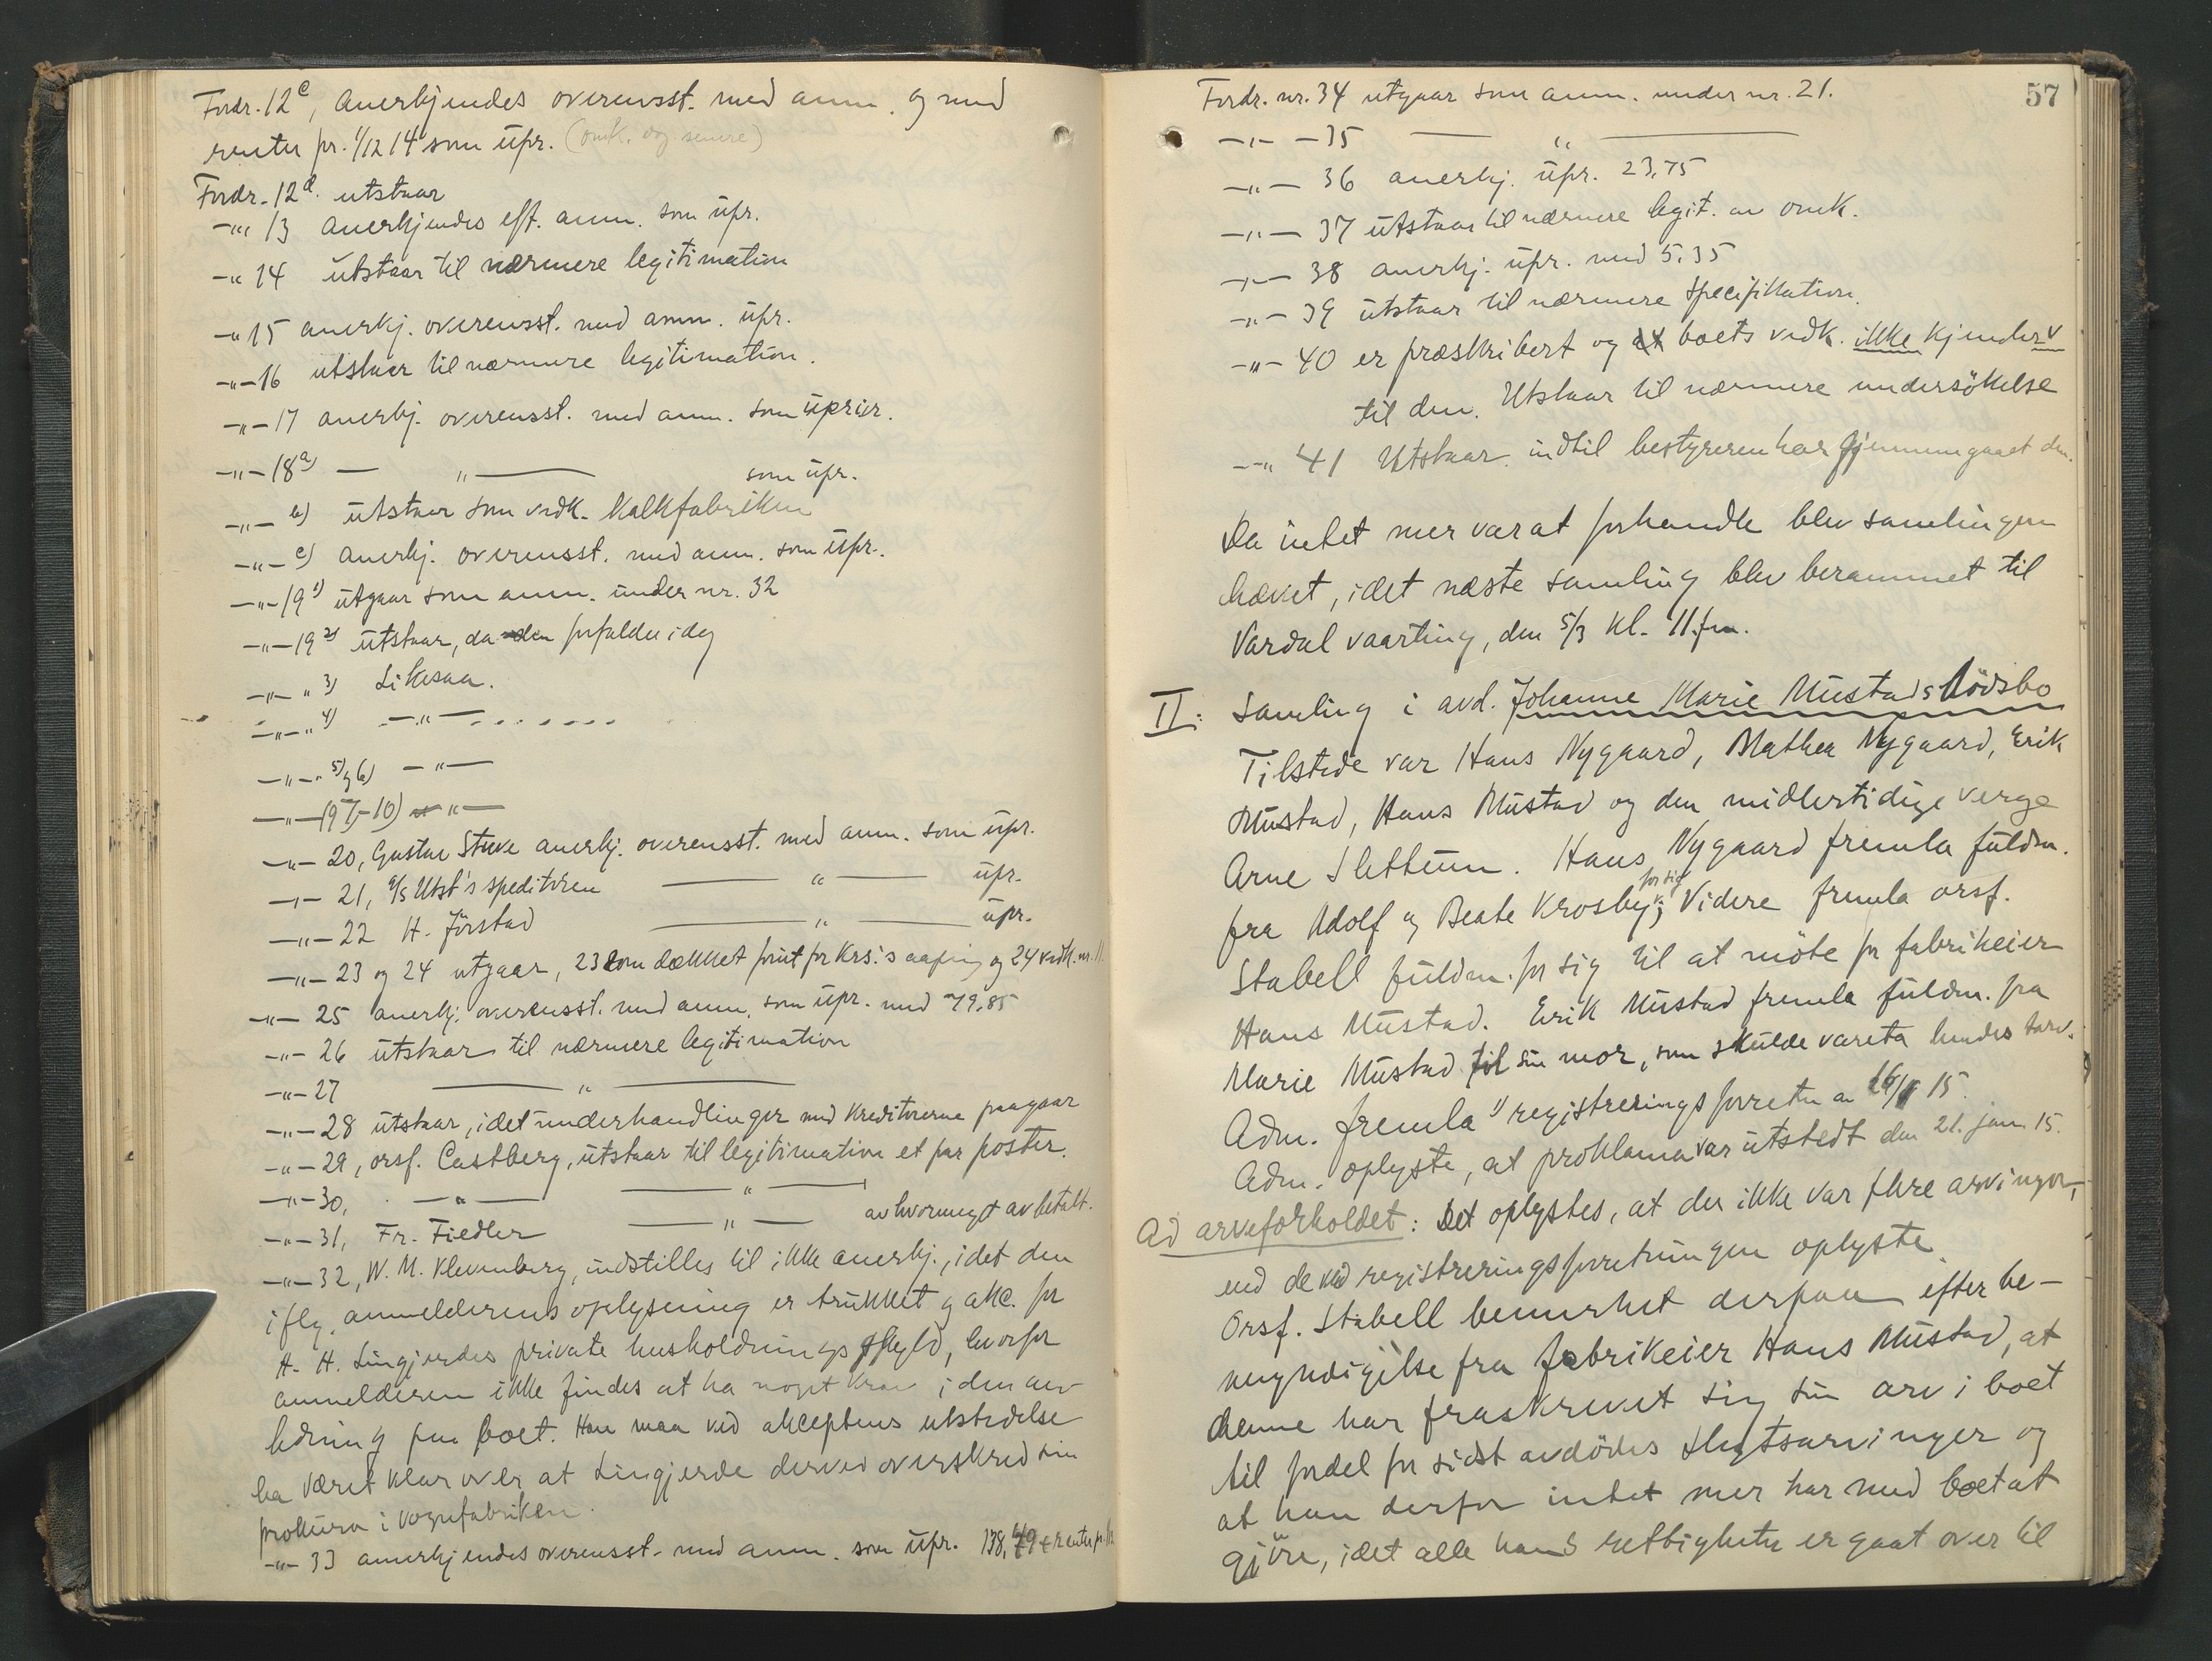 Fordr. 12c, anerkjendes overensst. med anm. og med
renter pr. 1/12 14 som upr. (omk. dog senere)
Fordr. 12d. utstaar
-"- 13 anerkjendes eft. anm. som upr.
-"- 14 utstaar til nærmere legitimation
-"- 15 anerkj. overensst. med anm. upr.
-"- 16 utstaar til nærmere legitimation.
-"- 17 anerkj. overensst. med anm. som uprior.
-"- 18a) — " — som upr.
-"- b) utstaar som vedk. Kalkfabriken
-"- c) anerkj. overensst. med anm. som upr.
-"- 19 1) utgaar som anm. under nr. 32
-"- 19 2) utstaar, da den forfalder idag
-"- " 3) Likesaa.
-"- " 4) -"-
-"- " 5) og 6) -"-
-"- 19 7)-10) -"-
-"- 20, Gustav Stuve anerkj. overensst. med anm. som upr.
-"- 21, A/S Utst's speditören — " — upr.
-"- 22 H. Förstad — " — upr.
-"- 23 og 24 utgaar, 23 som dækket forut for Krs.'s aapning og 24 vedk. nr. 11
-"- 25 anerkj. overensst. med anm. som upr. med 79.85
-"- 26 utstaar til nærmere legitimation
-"- 27 — " —
-"- 28 utstaar, idet underhandlinger med kreditorerne paagaar
-"- 29, orsf. Castberg, utstaar til legitimation et par poster.
-"- 30, -"- — " —
-"- 31, Fr. Fiedler — " — av hvormeget avbetalt.
-"- 32, W. M. Klevenberg, indstilles til ikke anerkj., idet den
iflg. anmelderens oplysning er trukket og akc. for
H. H. Lingjerdes private husholdningsgjæld, hvorfor
anmelderen ikke findes at ha noget krav i den an-
ledning paa boet. Han maa ved akceptens utstedelse
ha været klar over at Lingjerde derved overskred sin
prokura i vognfabriken.
-"- 33 anerkjendes overensst. med anm. som upr. 138,49 + renter pr.
57
Fordr. nr. 34 utgaar som anm. under nr. 21.
-"- - 35 — " —
-"- 36 anerkj. upr. 23,75
-"- 37 utstaar til nærmere legit. av omk.
-"- 38 anerkj. upr. med 5.35
-"- 39 utstaar til nærmere specifikation.
-"- 40 er præskribert og boets vedk. ikke kjender
til den. Utstaar til nærmere undersökelse
-"- 41 Utstaar indtil bestyreren har gjennemgaaet den.
Da intet mer var at forhandle blev samlingen
hævet, idet næste samling blev berammet til
Vardal vaarting, den 5/3 kl. 11 fm.
II: Samling i avd. Johanne Marie Mustads dödsbo
Tilstede var Hans Nygaard, Mathea Nygaard, Erik
Mustad, Hans Mustad og den midlertidige verge
Arne Slettum. Hans Nygaard fremla fuldm.
for sig
fra Adolf og Beate Krosby; Videre fremla orsf.
Stabell fuldm. for sig til at möte for fabrikeier
Hans Mustad. Erik Mustad fremla fuldm. fra
Marie Mustad til sin mor, som skulde vareta hendes tarv.
Adm. fremla 1) registreringsforretn. av 16/1 15.
Adm. oplyste, at proklama var utstedt den 21. jan. 15.
Ad arveforholdet: Det oplystes, at der ikke var flere arvinger,
end de ved registreringsforretningen oplyste.
Orsf. Stabell bemerket derpaa efter be-
myndigelse fra fabrikeier Hans Mustad, at
denne har fraskrevet sig sin arv i boet
til fordel for sidst avdödes slegtsarvinger og
at han derfor intet mer har med boet at
gjöre, idet alle hans rettigheter er gaat over til